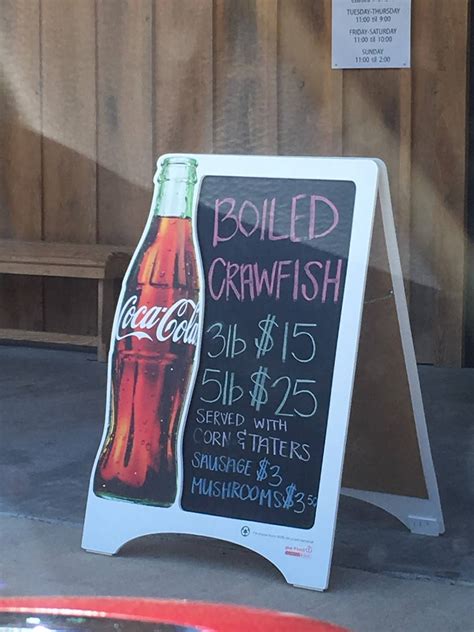 TUESDAY-THURSDAY
11:00 til 9:00
FRIDAY-SATURDAY
11:00 til 10:00
SUNDAY
11:00 til 2:00
BOILED
CRAWFISH
3lb $15
5lb $25
SERVED WITH
CORN & TATERS
SAUSAGE $3
MUSHROOMS $3.50
Coca-Cola